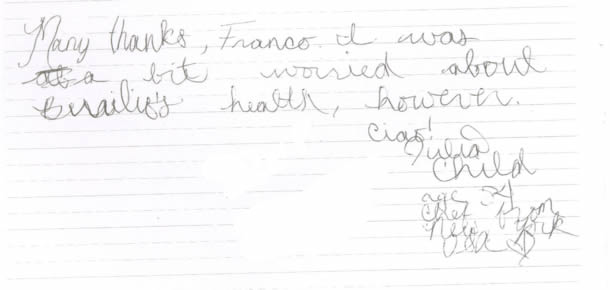 Many thanks, Franco. I was
a bit worried about
health, however.
ciao!
Julia
Child
age
Chef from
New York
USA